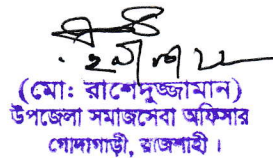 (মো: রাশেদুজ্জামান)
উপজেলা সমাজসেবা অফিসার
গোদাগাড়ী, রাজশাহী।